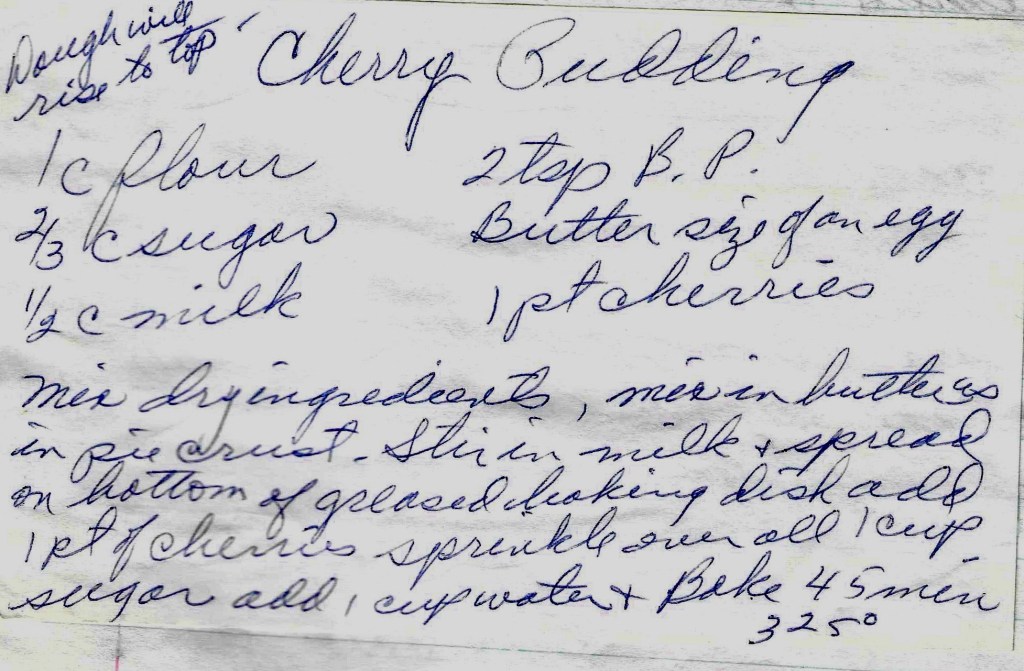 Dough will
rise to top
Cherry Pudding
1 c flour 2 tsp B. P.
2/3 c sugar Butter size of an egg
1/2 c milk 1 pt cherries
Mix dry ingredients, mix in butter as
in pie crust. Stir in milk + spread
on bottom of greased baking dish add
1 pt of cherries sprinkle over all 1 cup
sugar add 1 cup water + Bake 45 min
325°